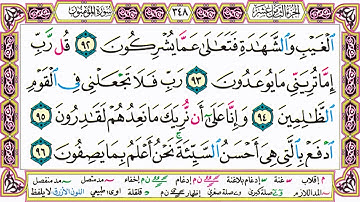 الجزء الثامن عشر ٣٤٨ سورة المؤمنون
الْغَيْبِ وَالشَّهَٰدَةِ فَتَعَٰلَىٰ عَمَّا يُشْرِكُونَ ٩٢ قُل رَّبِّ
إِمَّا تُرِيَنِّي مَا يُوعَدُونَ ٩٣ رَبِّ فَلَا تَجْعَلْنِي فِي الْقَوْمِ
الظَّٰلِمِينَ ٩٤ وَإِنَّا عَلَىٰٓ أَن نُّرِيَكَ مَا نَعِدُهُمْ لَقَٰدِرُونَ ٩٥
ادْفَعْ بِالَّتِي هِيَ أَحْسَنُ السَّيِّئَةَ نَحْنُ أَعْلَمُ بِمَا يَصِفُونَ ٩٦